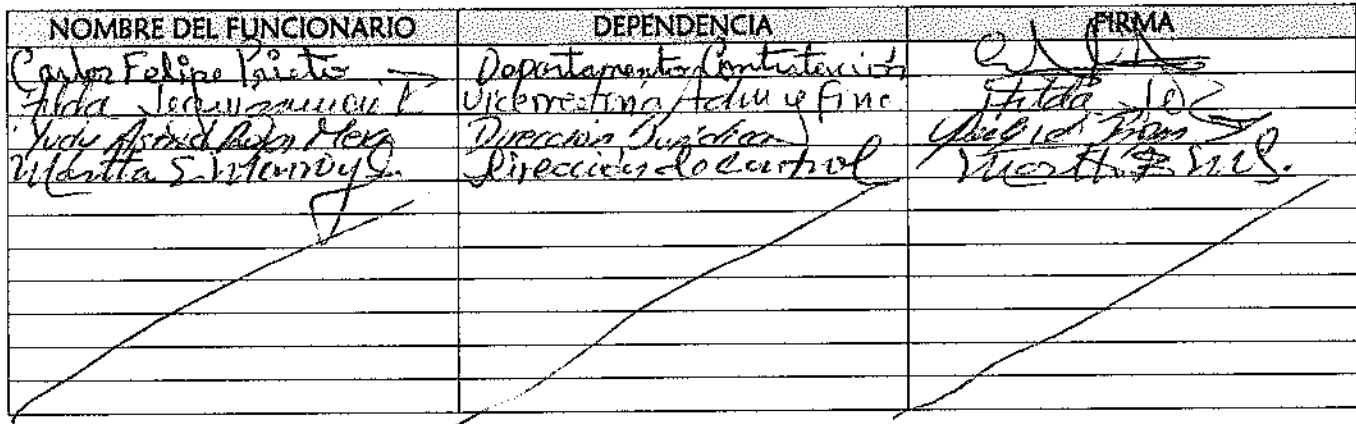 NOMBRE DEL FUNCIONARIO DEPENDENCIA FIRMA
Carlos Felipe Prieto Departamento Contratación
Hilda Vicerrectoria Adm y Finc Hilda
Yudy Astrid Rojas Mera Dirección Juridica
Martha S. Monroy S. Dirección de control Martha S. M S.